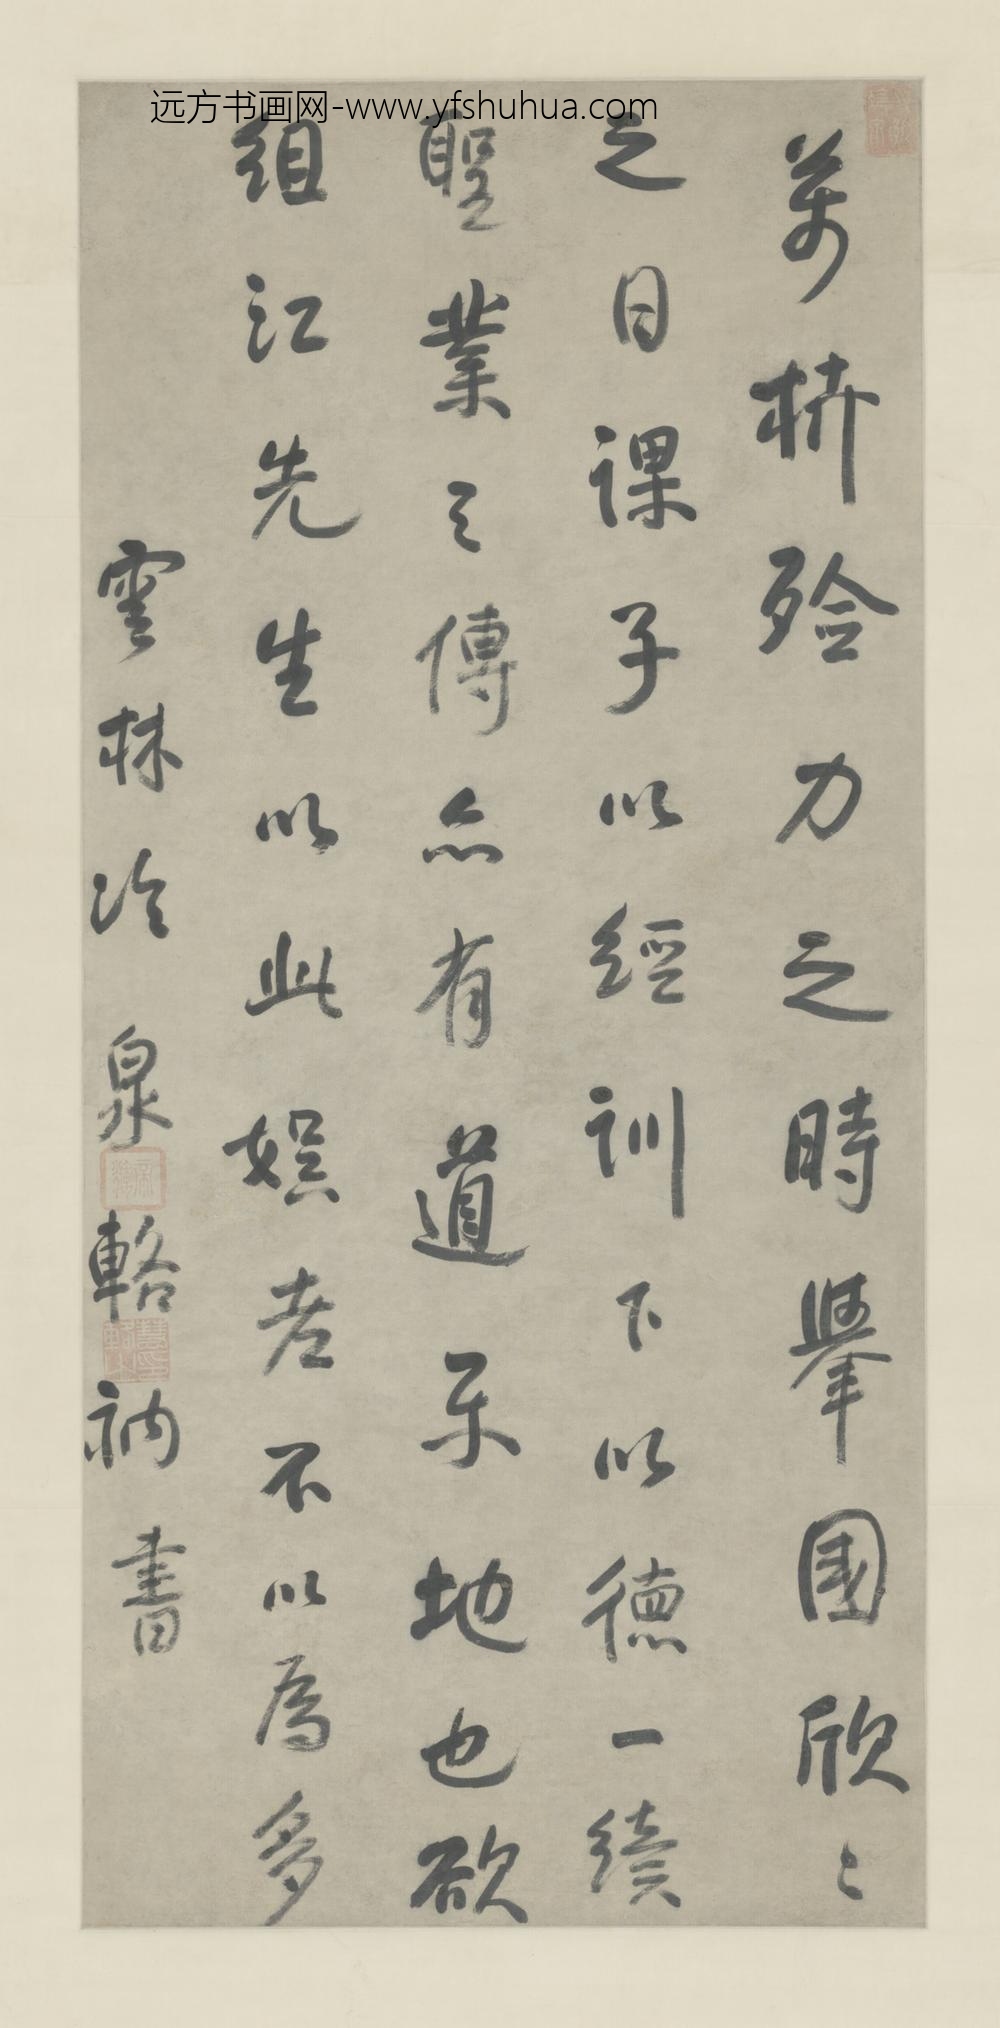 远方书画网-www.yfshuhua.com
萬桥殮力之時舉國欣〻
之日課子以經訓下以德一續
聖業之傳亦有道乐地也欲
組江先生以此娯老不以爲多
雲林冷泉輅衲書